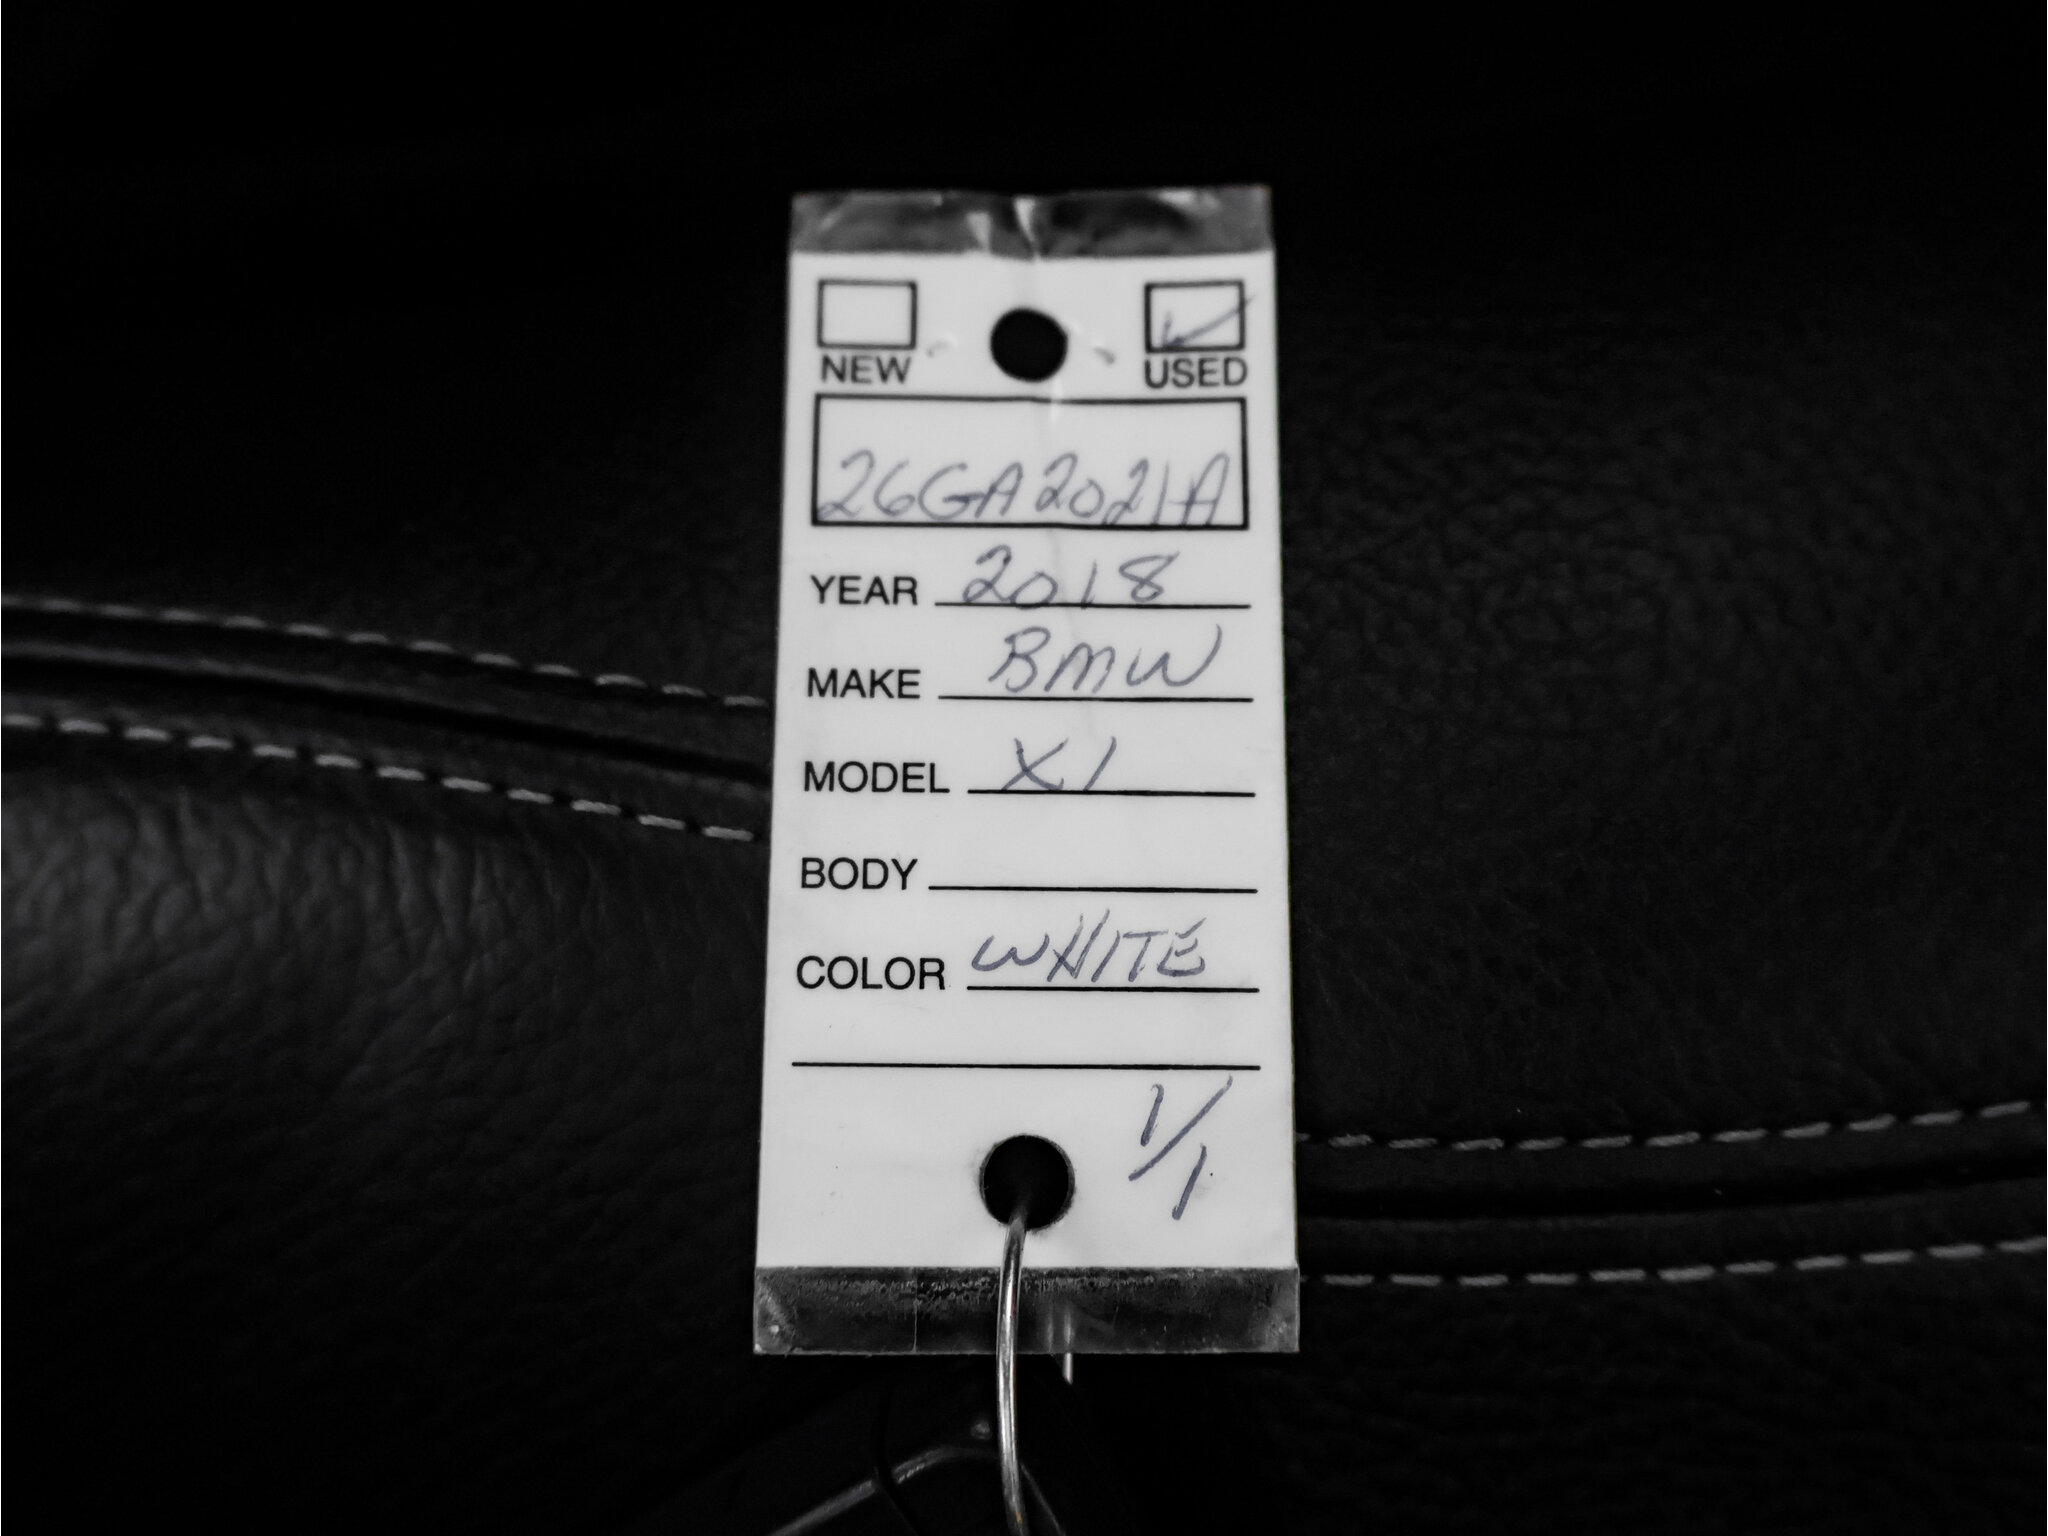 NEW USED
26GA2021A
YEAR 2018
MAKE BMW
MODEL X1
BODY
COLOR WHITE
1/1